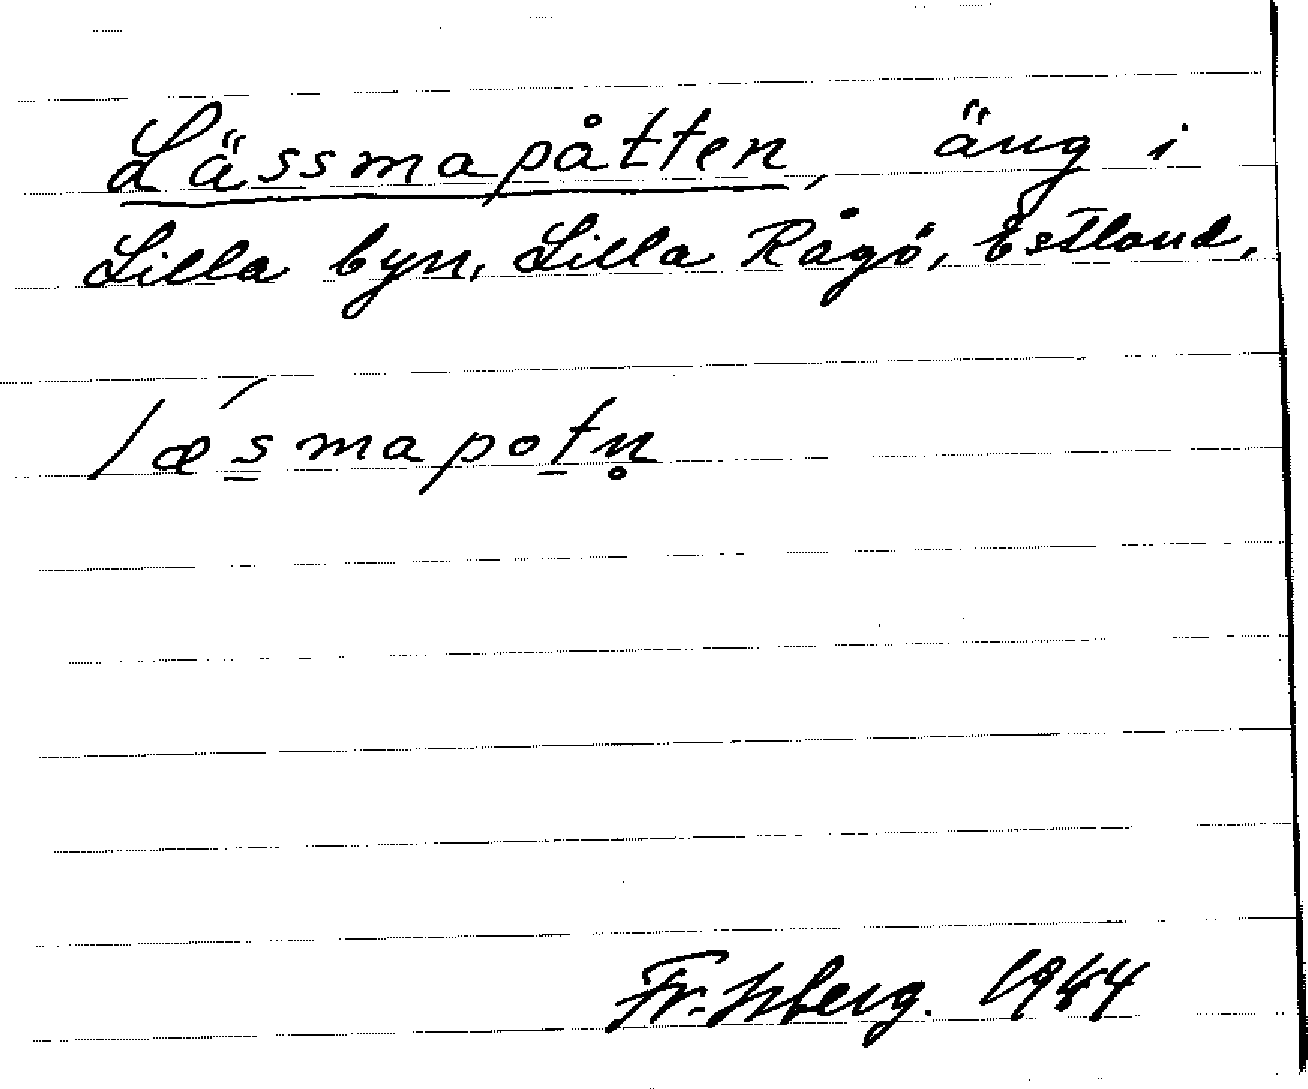 Lässmapåtten, äng i
Lilla byn, Lilla Rågö, Estland.
læ´s̲mapot̲n̥
Fr. Isberg. 1944